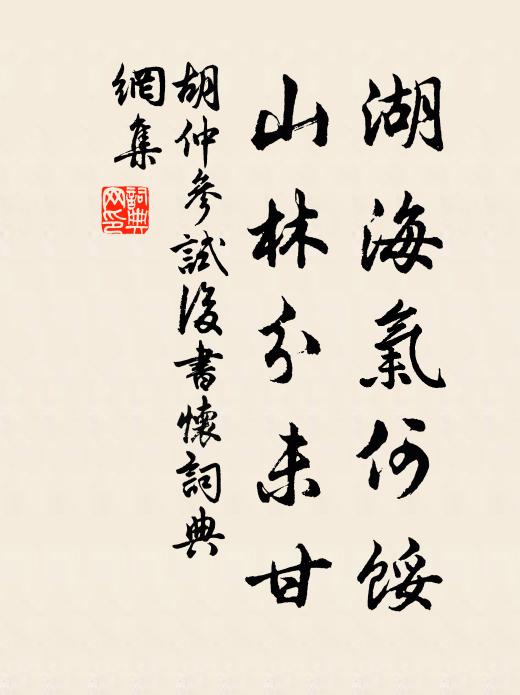 湖海氣何餒
山林分未甘
胡仲參試後書懷詞典
網集
詞典
网印